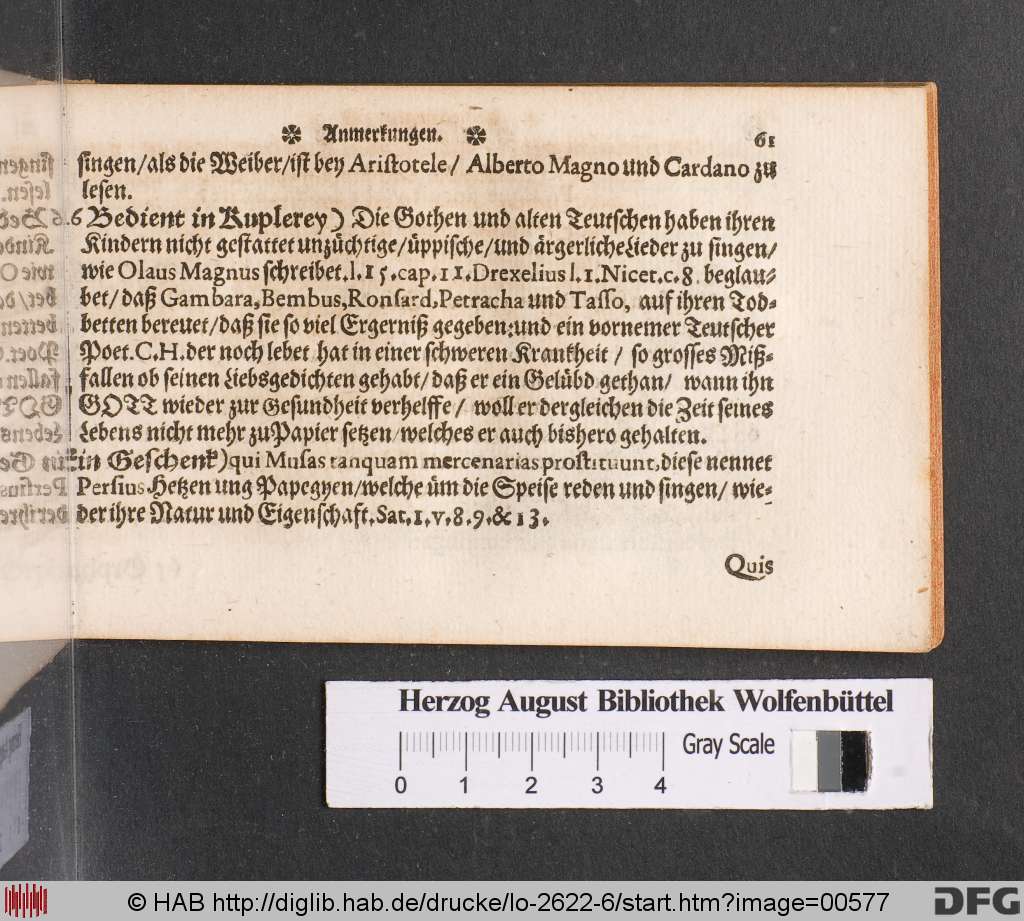 ✼ Anmerkungen. ✼ 61
singen/als die Weiber/ist bey Aristotele/ Alberto Magno und Cardano zu
lesen.
6 Bedient in Kuplerey) Die Gothen und alten Teutschen haben ihren
Kindern nicht gestattet unzüchtige/üppische/und ärgerliche Lieder zu singen/
wie Olaus Magnus schreibet.l.15.cap.11.Drexelius l.1.Nicet.c.8. beglau-
bet/daß Gambara,Bembus,Ronsard,Petracha und Tasso, auf ihren Tod-
betten bereuet/daß sie so viel Ergerniß gegeben:und ein vornemer Teutscher
Poet.C.H.der noch lebet hat in einer schweren Krankheit / so grosses Miß-
fallen ob seinen Liebsgedichten gehabt/daß er ein Gelübd gethan/ wann ihn
GOTT wieder zur Gesundheit verhelffe/ woll er dergleichen die Zeit seines
Lebens nicht mehr zu Papier setzen/welches er auch bishero gehalten.
in Geschenk)qui Musas tanquam mercenarias prostituunt,diese nennet
Persius Hetzen ung Papegyen/welche üm die Speise reden und singen/ wie-
der ihre Natur und Eigenschaft.Sat.1.v.8.9.&13.
Quis
Herzog August Bibliothek Wolfenbüttel
Gray Scale
0 1 2 3 4
© HAB http://diglib.hab.de/drucke/lo-2622-6/start.htm?image=00577
DFG